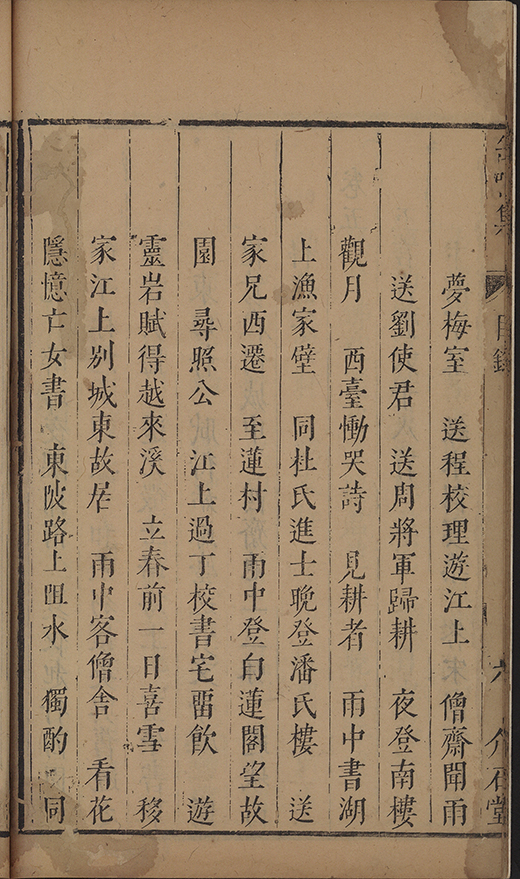 夢梅室　送程校理遊江上　僧齋聞雨
送劉使君　送周將軍歸耕　夜登南樓
觀月　西臺慟哭詩　見耕者　雨中書湖
上漁家壁　同杜氏進士晚登潘氏樓　送
家兄西遷　至蓮村　雨中登白蓮閣望故
園　尋照公　江上過丁校書宅留飲　遊
靈岩賦得越來溪　立春前一日喜雪　移
家江上別城東故居　雨中客僧舍　看花
隱憶亡女書　東陂路上阻水　獨酌　同
目錄
六　介石堂